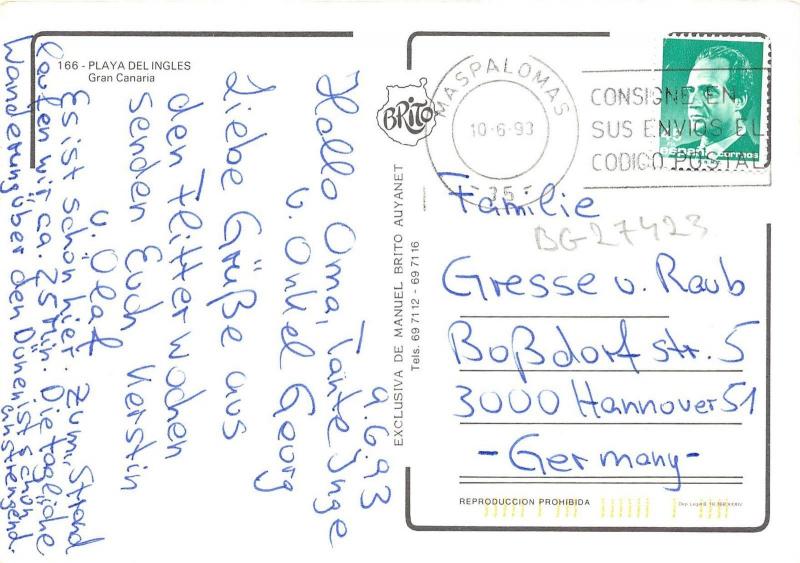 166 - PLAYA DEL INGLES
Gran Canaria
9.6.93
Hallo Oma, Tante Inge
u. Onkel Georg
Liebe Grüße aus
den Flitterwochen
senden Euch Kerstin
u. Olaf
Es ist schön hier. Zum Strand
laufen wir ca. 25 min. Die tägliche
Wanderung über den Dünen ist schön
anstrengend.
BRITO
EXCLUSIVA DE MANUEL BRITO AUYANET
Tels. 69 71 12 - 69 71 16
MASPALOMAS
10-6-93
-35-
CONSIGNE EN
SUS ENVIOS EL
CODIGO POSTAL
Familie
BG27423
Gresse u. Raub
Boßdorfstr. 5
3000 Hannover 51
- Germany -
REPRODUCCION PROHIBIDA